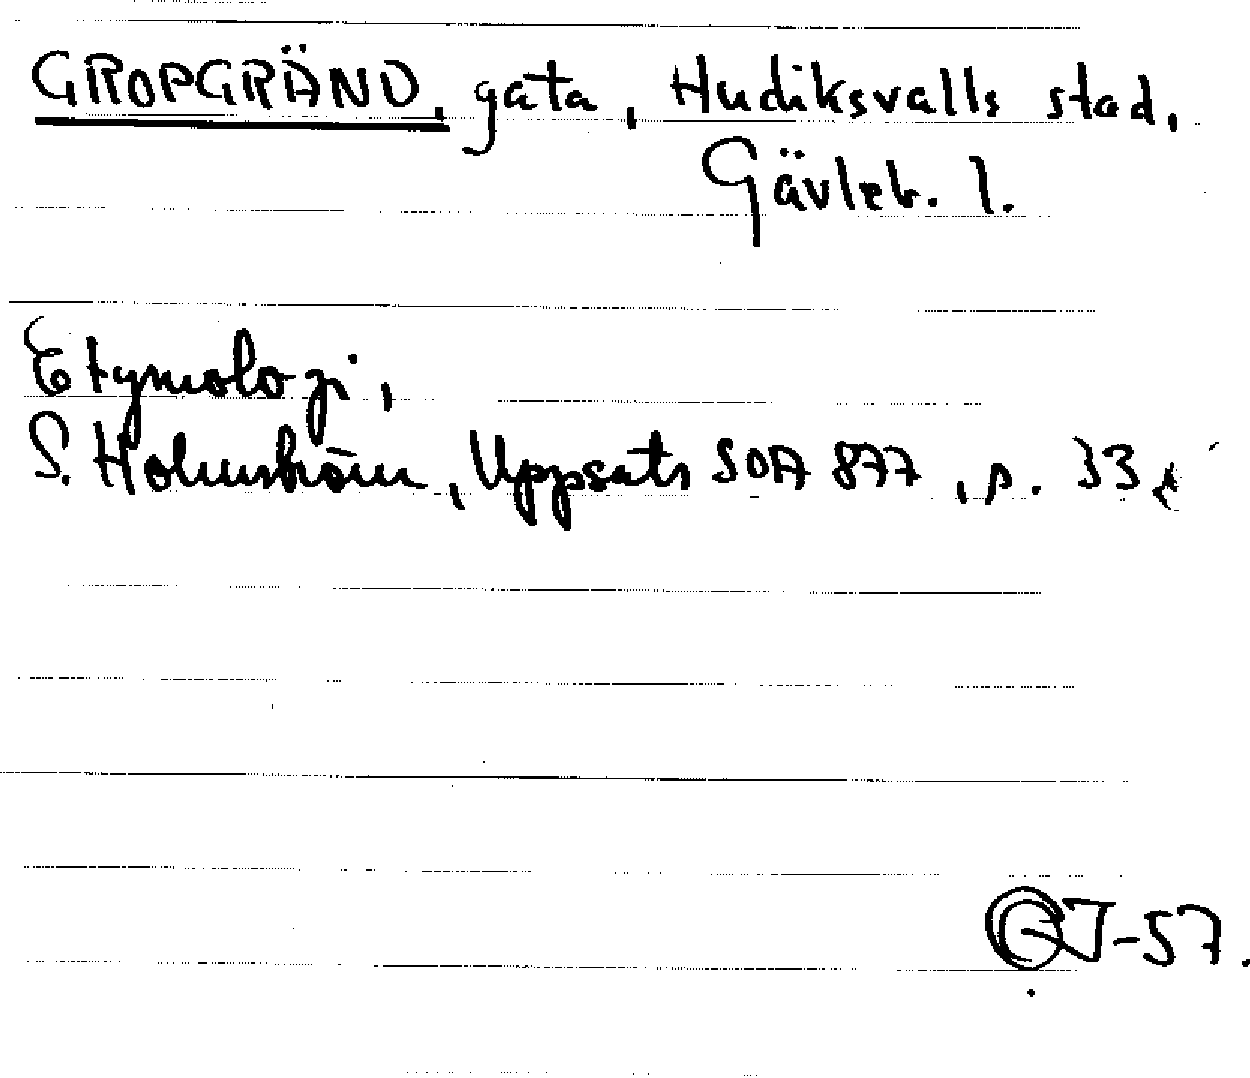 GROPGRÄND, gata, Hudiksvalls stad,
Gävleb. l.
Etymologi,
S. Holmström, Uppsats SOA 877, p. 33